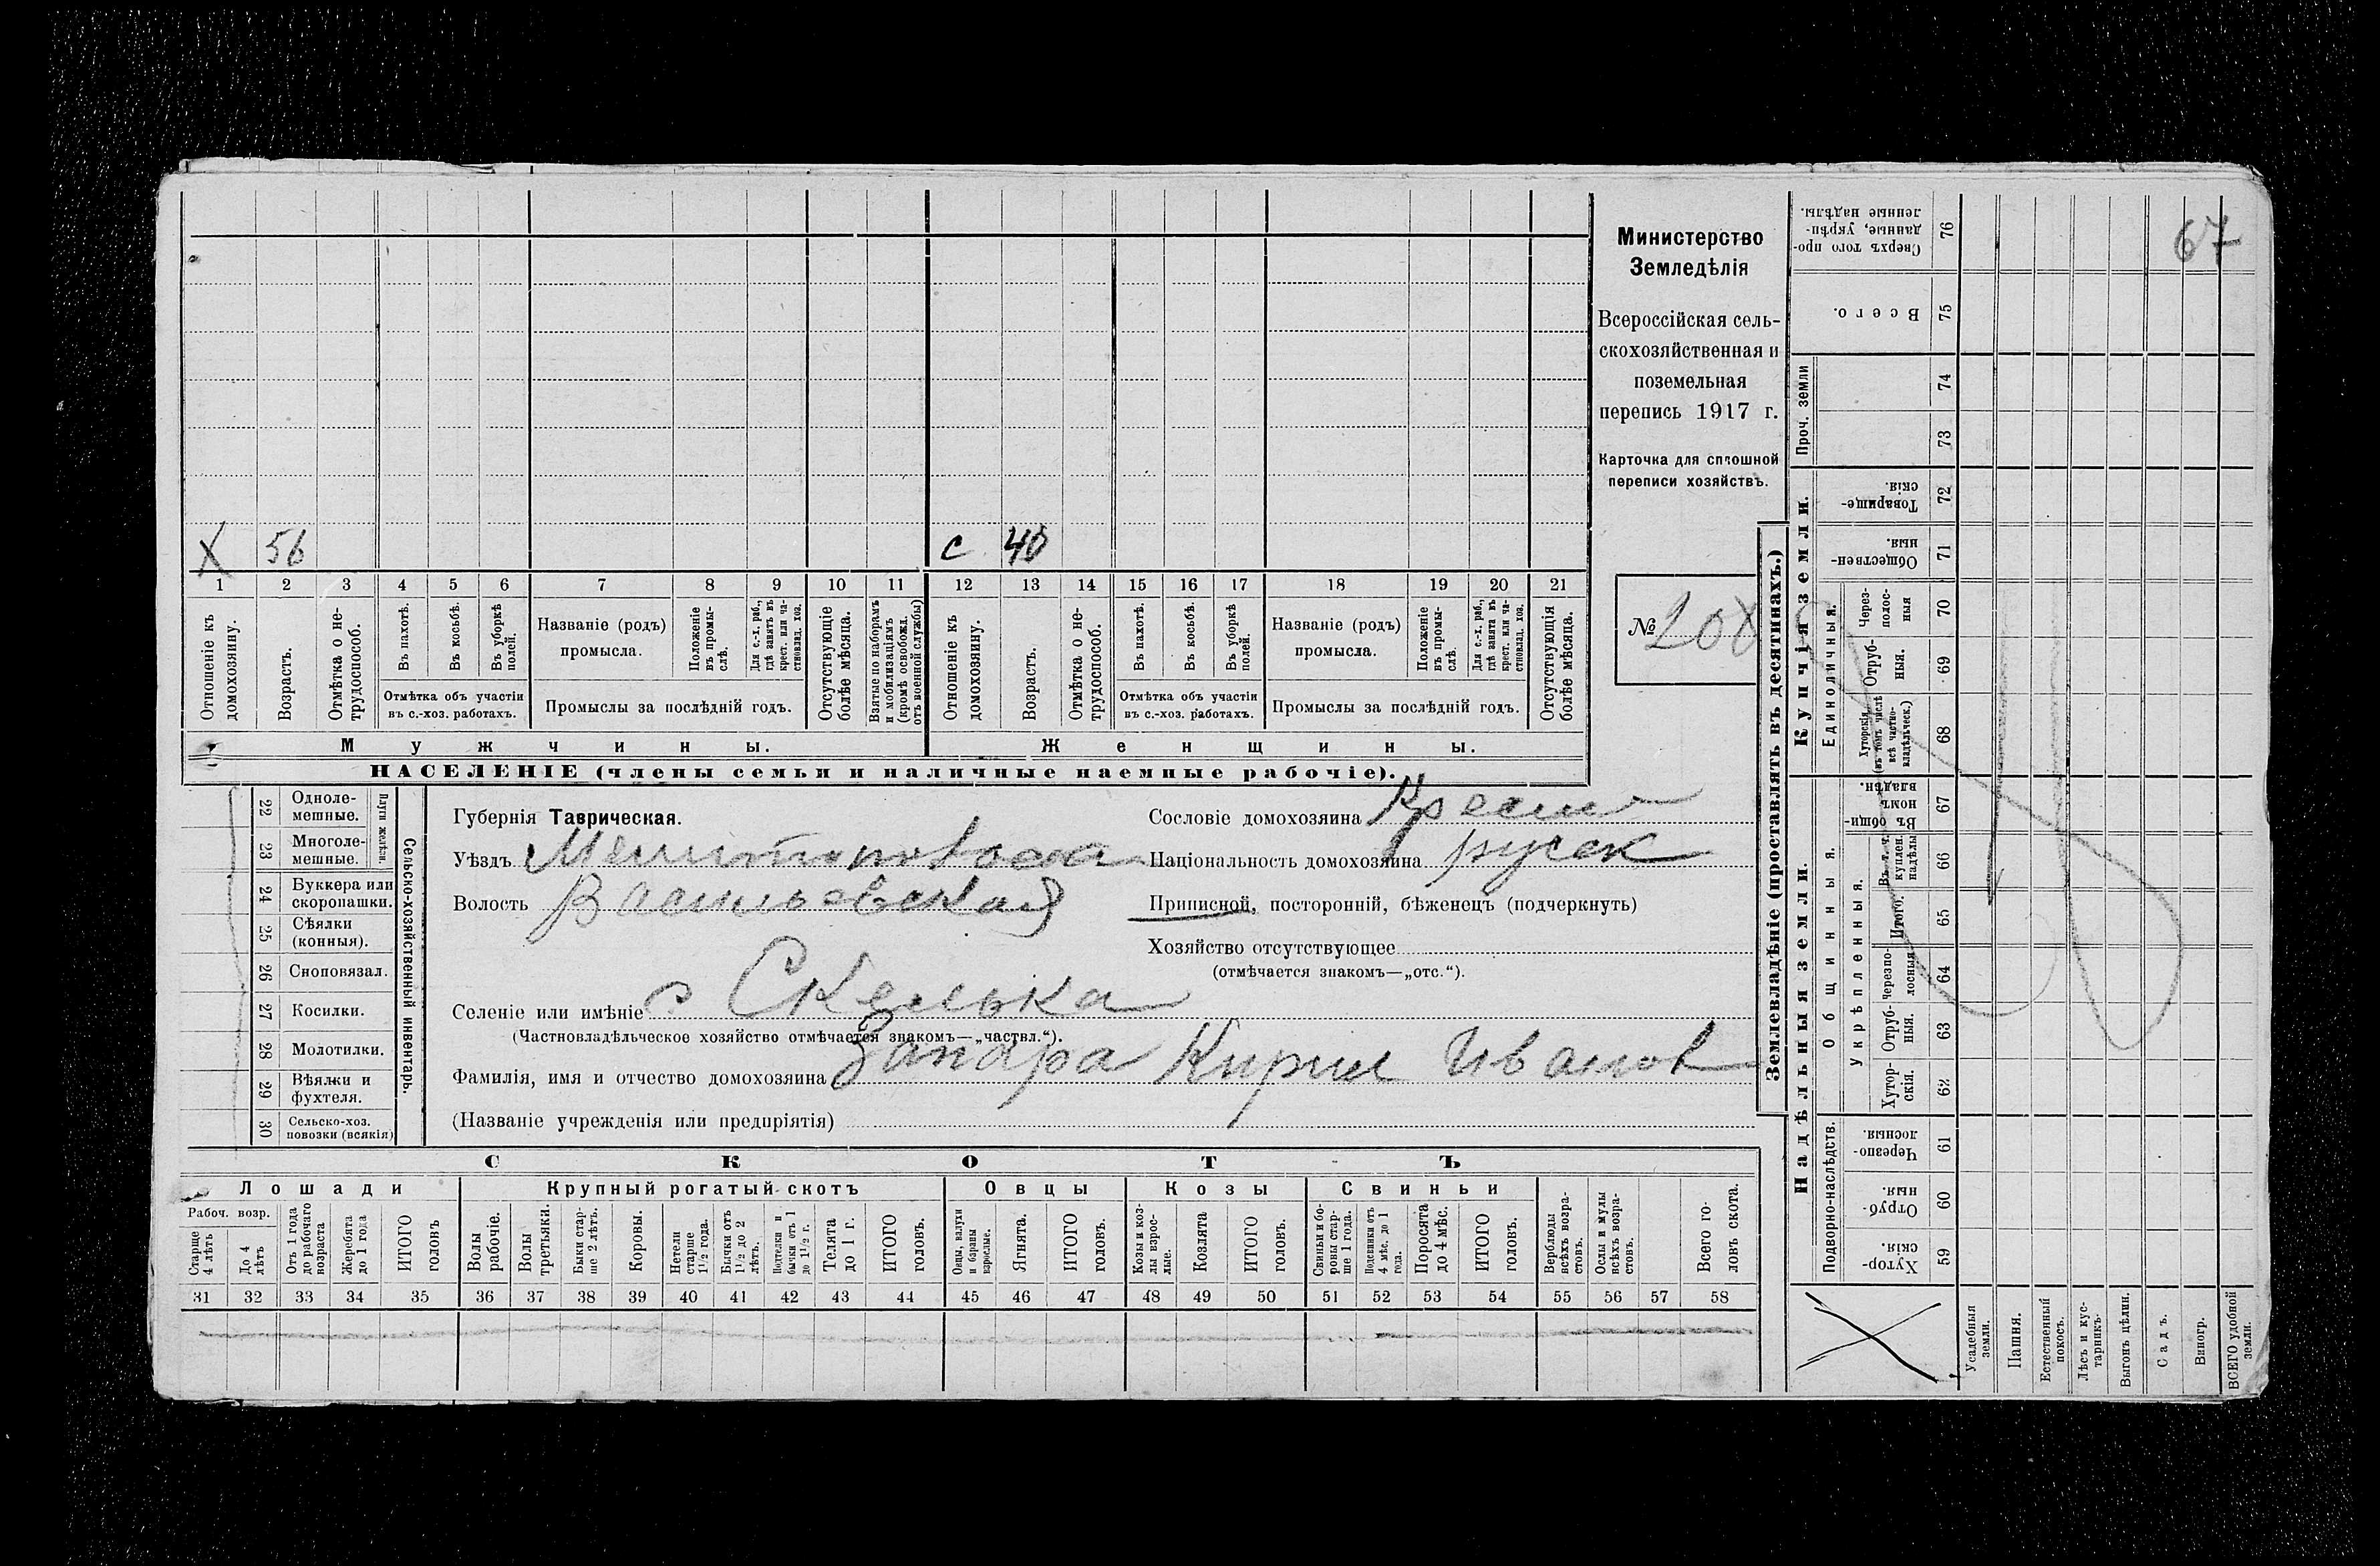 67
Министерство
Земледѣлія
Всероссійская сель-
скохозяйственная и
поземельная
перепись 1917 г.
Карточка для сплошной
переписи хозяйствъ.
№ 208
X 56 с 40
1 2 3 4 5 6 7 8 9 10 11 12 13 14 15 16 17 18 19 20 21
Отношеніе къ домохозяину.
Возрастъ.
Отмѣтка о не-трудоспособ.
Въ пахотѣ.
Въ косьбѣ.
Въ уборкѣ полей.
Отмѣтка объ участіи
въ с.-хоз. работахъ.
Названіе (родъ)
промысла.
Положеніе въ промы-слѣ.
Для с.-х. раб., гдѣ занятъ въ крест. или ча-стновлад. хоз.
Промыслы за послѣдній годъ.
Отсутствующіе болѣе мѣсяца.
Взятые по наборамъ и мобилизаціямъ (кромѣ освобожд. отъ военной службы)
Отношеніе къ домохозяину.
Возрастъ.
Отмѣтка о не-трудоспособ.
Въ пахотѣ.
Въ косьбѣ.
Въ уборкѣ полей.
Отмѣтка объ участіи
въ с.-хоз. работахъ.
Названіе (родъ)
промысла.
Положеніе въ промы-слѣ.
Для с.-х. раб., гдѣ занята въ крест. или ча-стновлад. хоз.
Промыслы за послѣдній годъ.
Отсутствующія болѣе мѣсяца.
Мужчины. Женщины.
НАСЕЛЕНІЕ (члены семьи и наличные наемные рабочіе).
22 Одноле-мешные.
23 Многоле-мешные.
Плуги желѣзн.
24 Буккера или скоропашки.
25 Сѣялки (конныя).
26 Сноповязал.
27 Косилки.
28 Молотилки.
29 Вѣялки и фухтеля.
30 Сельско-хоз. повозки (всякія)
Сельско-хозяйственный инвентарь.
Губернія Таврическая.
Уѣздъ Мелитопольская
Волость Васильевская
Сословіе домохозяина Крестья
Національность домохозяина русск
Приписной, посторонній, бѣженецъ (подчеркнуть)
Хозяйство отсутствующее
(отмѣчается знакомъ—„отс.“).
Селеніе или имѣніе с Скелька
(Частновладѣльческое хозяйство отмѣчается знакомъ—„частвл.“).
Фамилія, имя и отчество домохозяина Запара Кирил Иванов
(Названіе учрежденія или предпріятія)
СКОТЪ
Лошади
Крупный рогатый скотъ
Овцы
Козы
Свиньи
Рабоч. возр.
Старше 4 лѣтъ
До 4 лѣтъ
Отъ 1 года до рабочаго возраста
Жеребята до 1 года
ИТОГО головъ
Волы рабочіе.
Волы третьяки.
Быки стар-ше 2 лѣтъ.
Коровы.
Нетели старше 1½ года.
Бычки отъ 1½ до 2 лѣтъ.
Подтелки и бычки отъ 1 до 1½ г.
Телята до 1 г.
ИТОГО головъ.
Овцы, валухи и бараны взрослые.
Ягнята.
ИТОГО головъ.
Козы и коз-лы взрос-лые.
Козлята
ИТОГО головъ.
Свиньи и бо-ровы стар-ше 1 года.
Подсвинки отъ 4 мѣс. до 1 года.
Поросята до 4 мѣс.
ИТОГО головъ.
Верблюды всѣхъ возра-стовъ.
Ослы и мулы всѣхъ возра-стовъ.
Всего го-ловъ скота.
31 32 33 34 35 36 37 38 39 40 41 42 43 44 45 46 47 48 49 50 51 52 53 54 55 56 57 58
Землевладѣніе (проставлять въ десятинахъ.)
Купчія земли.
Надѣльныя земли.
Сверхъ того про-данные, укрѣп-ленные надѣлы. 76
Всего. 75
Проч. земли 74
73
Товарище-скія. 72
Обществен-ныя. 71
Единоличныя.
Через-полос-ныя 70
Отруб-ныя. 69
Хуторскія (въ томъ числѣ всѣ частно-владѣльческ.) 68
Общинныя.
Въ общи-номъ владѣн. 67
Укрѣпленныя.
Въ т. ч. куплен. надѣлы 66
Итого. 65
Черезпо-лосныя 64
Отруб-ныя. 63
Хутор-скія. 62
Подворно-наслѣдств.
Черезпо-лосныя. 61
Отруб-ныя. 60
Хутор-скія. 59
Усадебныя земли.
Пашня.
Естественный покосъ.
Лѣсъ и кус-тарникъ.
Выгонъ цѣлин.
Садъ.
Виногр.
ВСЕГО удобной земли.